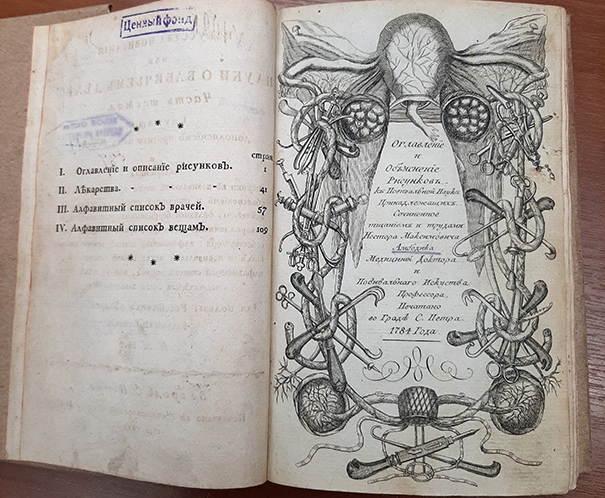 Ценный фонд
стран.
I. Оглавленїе и описанїе рисунковъ. 1
II. Лѣкарства. - 41
III. Алфавитный списокъ врачей. 57
IV. Алфавитный списокъ вещамъ. 109
Оглавленїе
и
Объясненїе
Рисунковъ
къ Повивальной Наукѣ
Принадлежащихъ.
Сочиненное
тщанїемъ и трудами
Нестора Максимовича
Амбодика
Медицины Доктора
и
Повивальнаго Искуства
Профессора.
Печатано
во Градѣ С. Петра.
1784 Года.